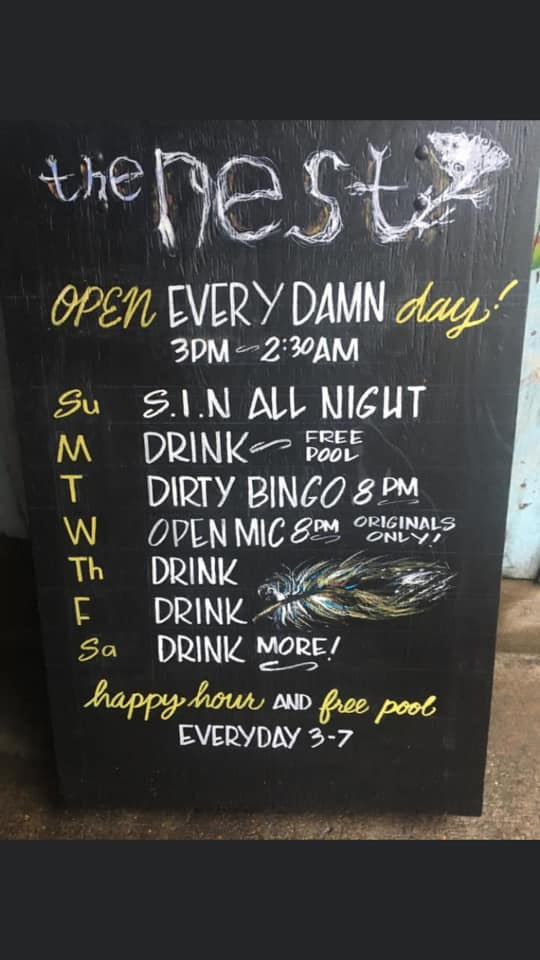 the nest
OPEN EVERY DAMN day!
3PM ~ 2:30AM
Su S.I.N ALL NIGHT
M DRINK ~ FREE POOL
T DIRTY BINGO 8 PM
W OPEN MIC 8PM ORIGINALS ONLY!
Th DRINK
F DRINK
Sa DRINK MORE!
happy hour AND free pool
EVERYDAY 3-7